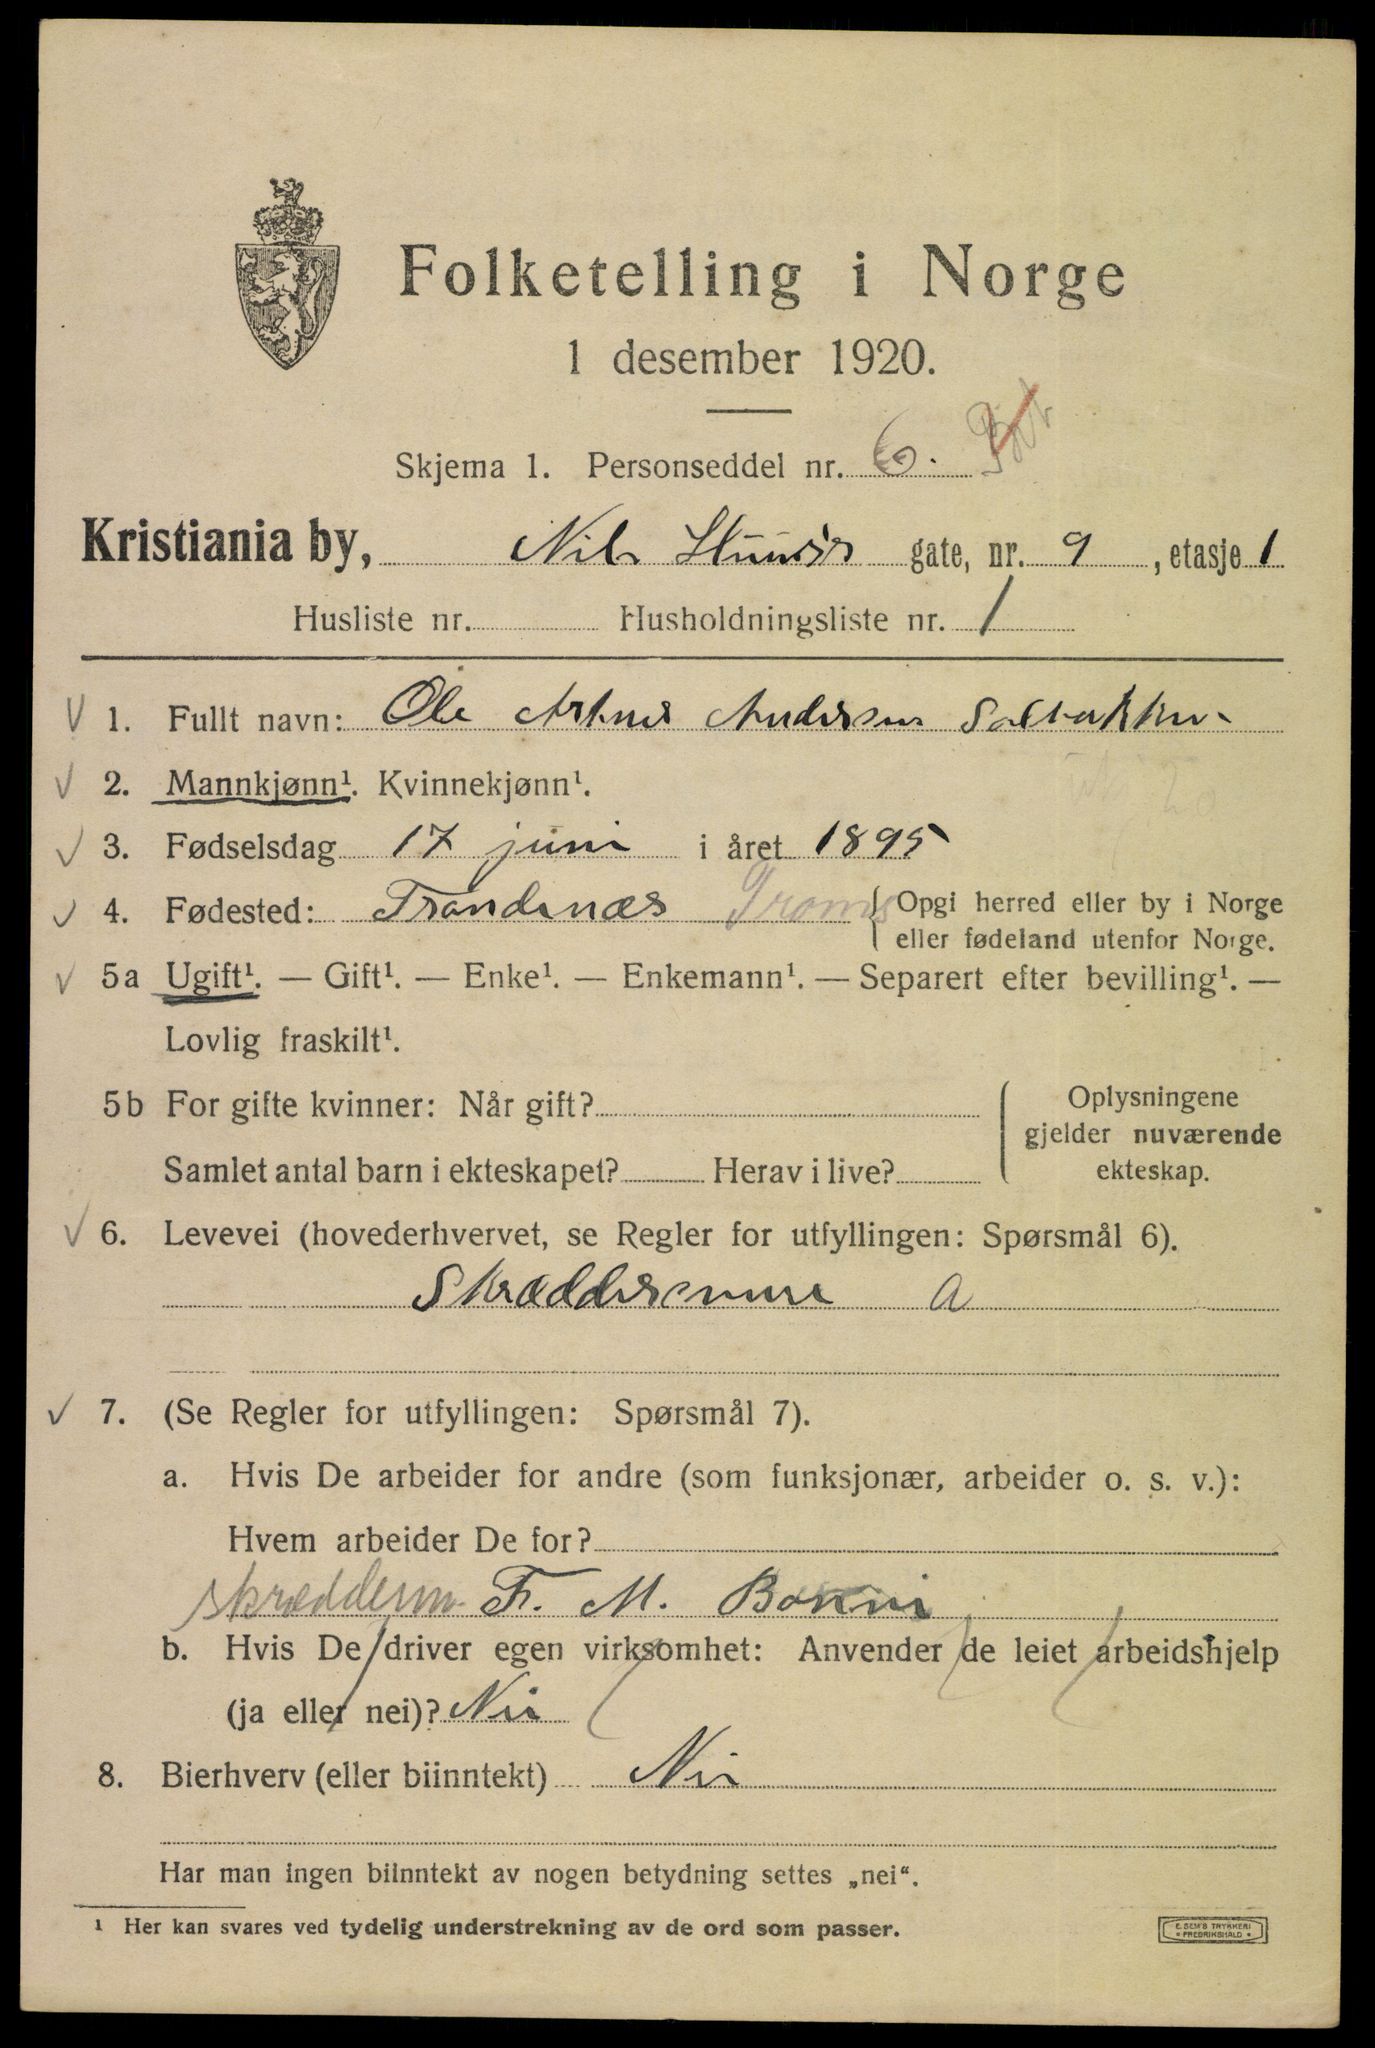 Folketelling i Norge
1 desember 1920.
Skjema 1. Personseddel nr. 6.
Kristiania by, Nils Huus's gate, nr. 9, etasje 1
Husliste nr. Husholdningsliste nr. 1
1. Fullt navn: Ole Arkner Andersen Solbakken
2. Mannkjønn¹. Kvinnekjønn¹.
3. Fødselsdag 17 juni i året 1895
4. Fødested: Trondenæs Troms { Opgi herred eller by i Norge
eller fødeland utenfor Norge.
5a Ugift¹. — Gift¹. — Enke¹. — Enkemann¹. — Separert efter bevilling¹. —
Lovlig fraskilt¹.
5b For gifte kvinner: Når gift?
Samlet antal barn i ekteskapet? Herav i live?
Oplysningene
gjelder nuværende
ekteskap.
6. Levevei (hovederhvervet, se Regler for utfyllingen: Spørsmål 6).
Skræddersvend a
7. (Se Regler for utfyllingen: Spørsmål 7).
a. Hvis De arbeider for andre (som funksjonær, arbeider o. s. v.):
Hvem arbeider De for?
skrædderm. Fr. M. Bonni
b. Hvis De driver egen virksomhet: Anvender de leiet arbeidshjelp
(ja eller nei)? Nei
8. Bierhverv (eller biinntekt) Nei
Har man ingen biinntekt av nogen betydning settes „nei“.
¹ Her kan svares ved tydelig understrekning av de ord som passer.
E. SEM'S TRYKKERI
* FREDRIKSHALD *